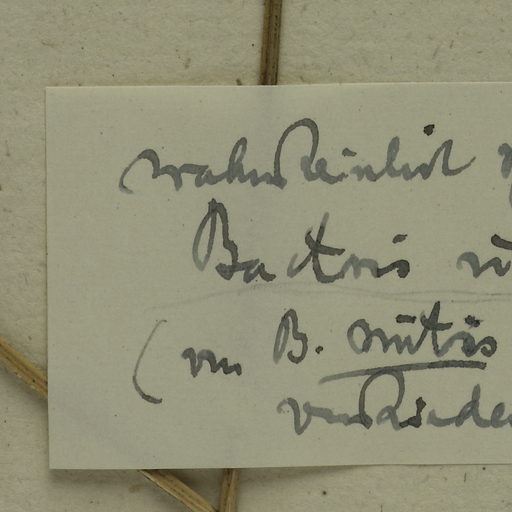 wahrscheinlich
Bactris
(von B. mitis
verschieden